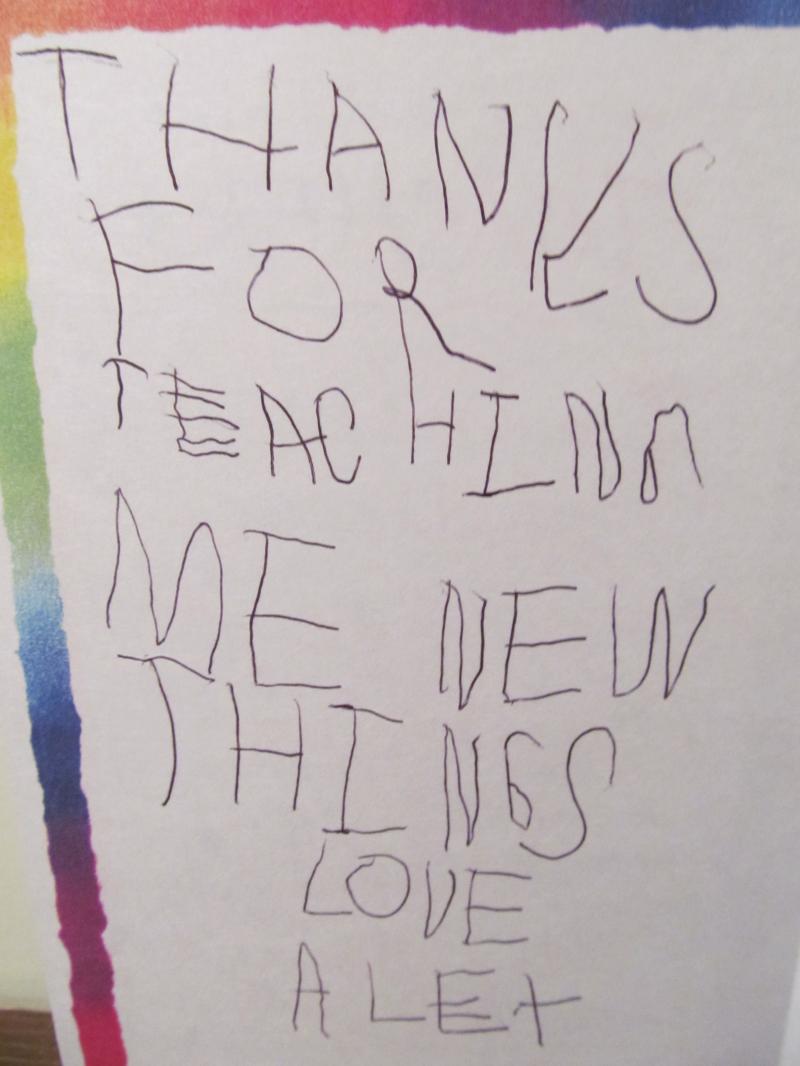 THANKS
FOR
TEACHING
ME NEW
THINGS
LOVE
ALEX